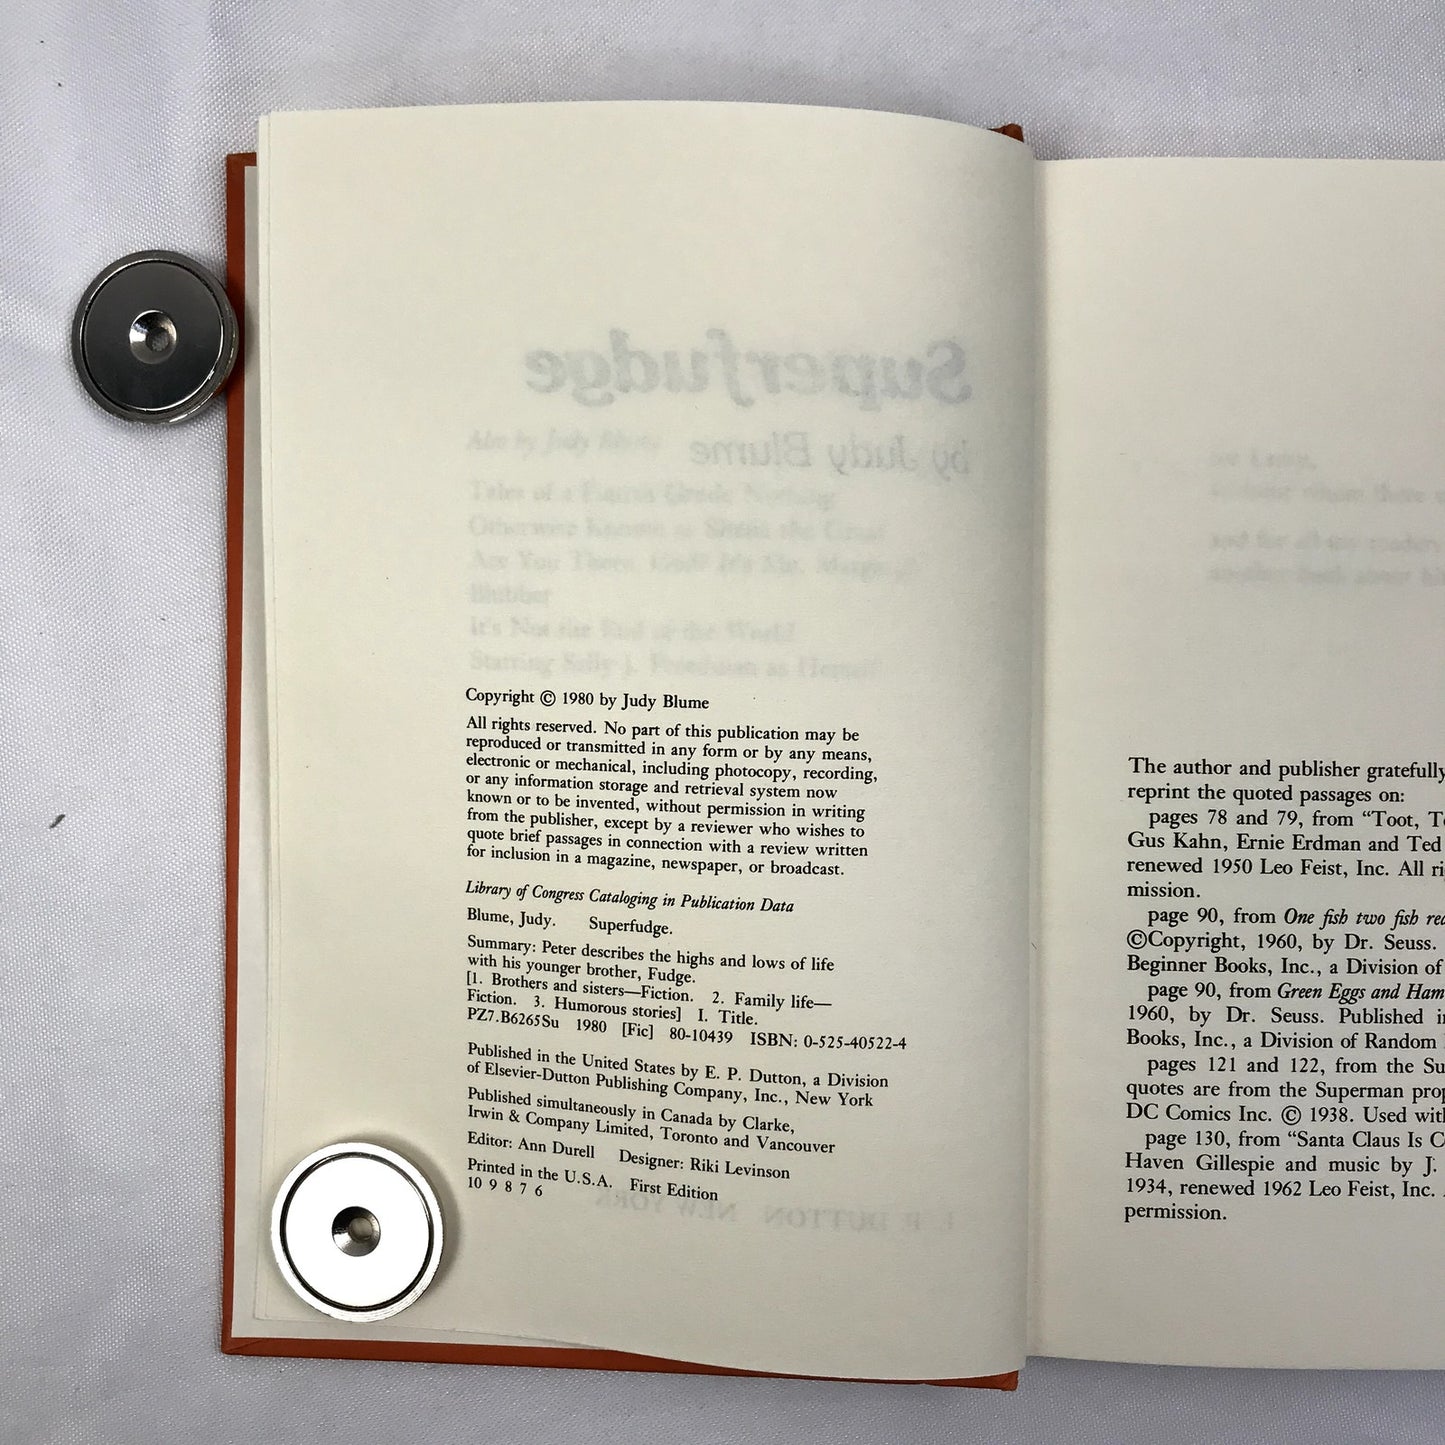 Superfudge
by Judy Blume
Also by Judy Blume
Tales of a Fourth Grade Nothing
Otherwise Known as Sheila the Great
Are You There, God? It's Me, Margaret
Blubber
It's Not the End of the World
Starring Sally J. Freedman as Herself
Copyright © 1980 by Judy Blume
All rights reserved. No part of this publication may be
reproduced or transmitted in any form or by any means,
electronic or mechanical, including photocopy, recording,
or any information storage and retrieval system now
known or to be invented, without permission in writing
from the publisher, except by a reviewer who wishes to
quote brief passages in connection with a review written
for inclusion in a magazine, newspaper, or broadcast.
Library of Congress Cataloging in Publication Data
Blume, Judy. Superfudge.
Summary: Peter describes the highs and lows of life
with his younger brother, Fudge.
[1. Brothers and sisters—Fiction. 2. Family life—
Fiction. 3. Humorous stories] I. Title.
PZ7.B6265Su 1980 [Fic] 80-10439 ISBN: 0-525-40522-4
Published in the United States by E. P. Dutton, a Division
of Elsevier-Dutton Publishing Company, Inc., New York
Published simultaneously in Canada by Clarke,
Irwin & Company Limited, Toronto and Vancouver
Editor: Ann Durell Designer: Riki Levinson
Printed in the U.S.A. First Edition
10 9 8 7 6
E. P. DUTTON NEW YORK
The author and publisher gratefully
reprint the quoted passages on:
pages 78 and 79, from "Toot, T
Gus Kahn, Ernie Erdman and Ted
renewed 1950 Leo Feist, Inc. All ri
mission.
page 90, from One fish two fish re
©Copyright, 1960, by Dr. Seuss.
Beginner Books, Inc., a Division of
page 90, from Green Eggs and Ham
1960, by Dr. Seuss. Published i
Books, Inc., a Division of Random
pages 121 and 122, from the Su
quotes are from the Superman pro
DC Comics Inc. © 1938. Used wit
page 130, from "Santa Claus Is C
Haven Gillespie and music by J.
1934, renewed 1962 Leo Feist, Inc.
permission.